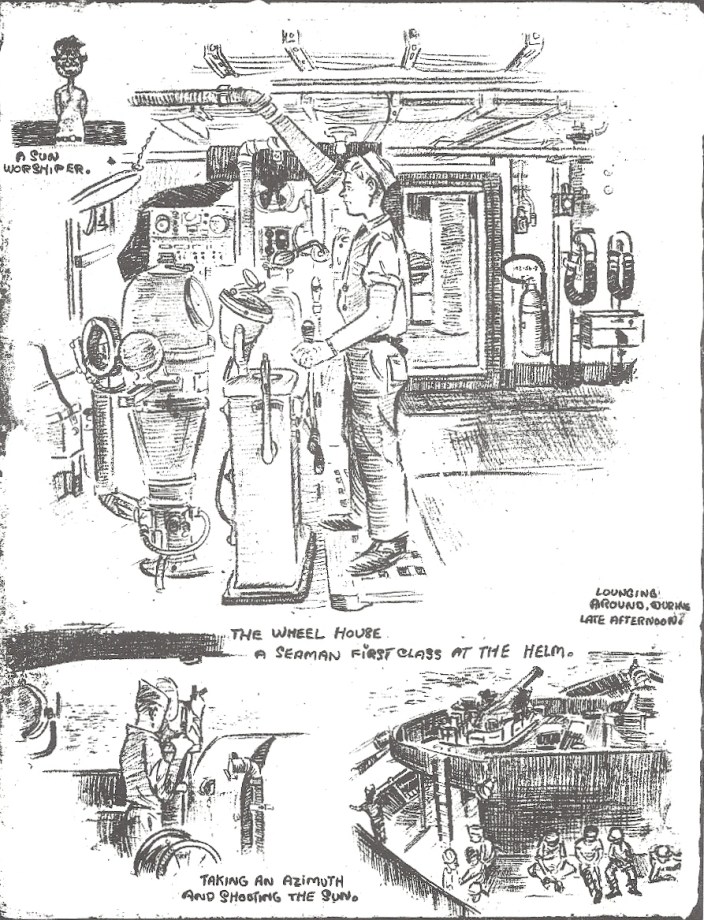 A SUN
WORSHIPER.
THE WHEEL HOUSE
A SEAMAN FIRST CLASS AT THE HELM.
LOUNGING
AROUND, DURING
LATE AFTERNOON.
TAKING AN AZIMUTH
AND SHOOTING THE SUN.